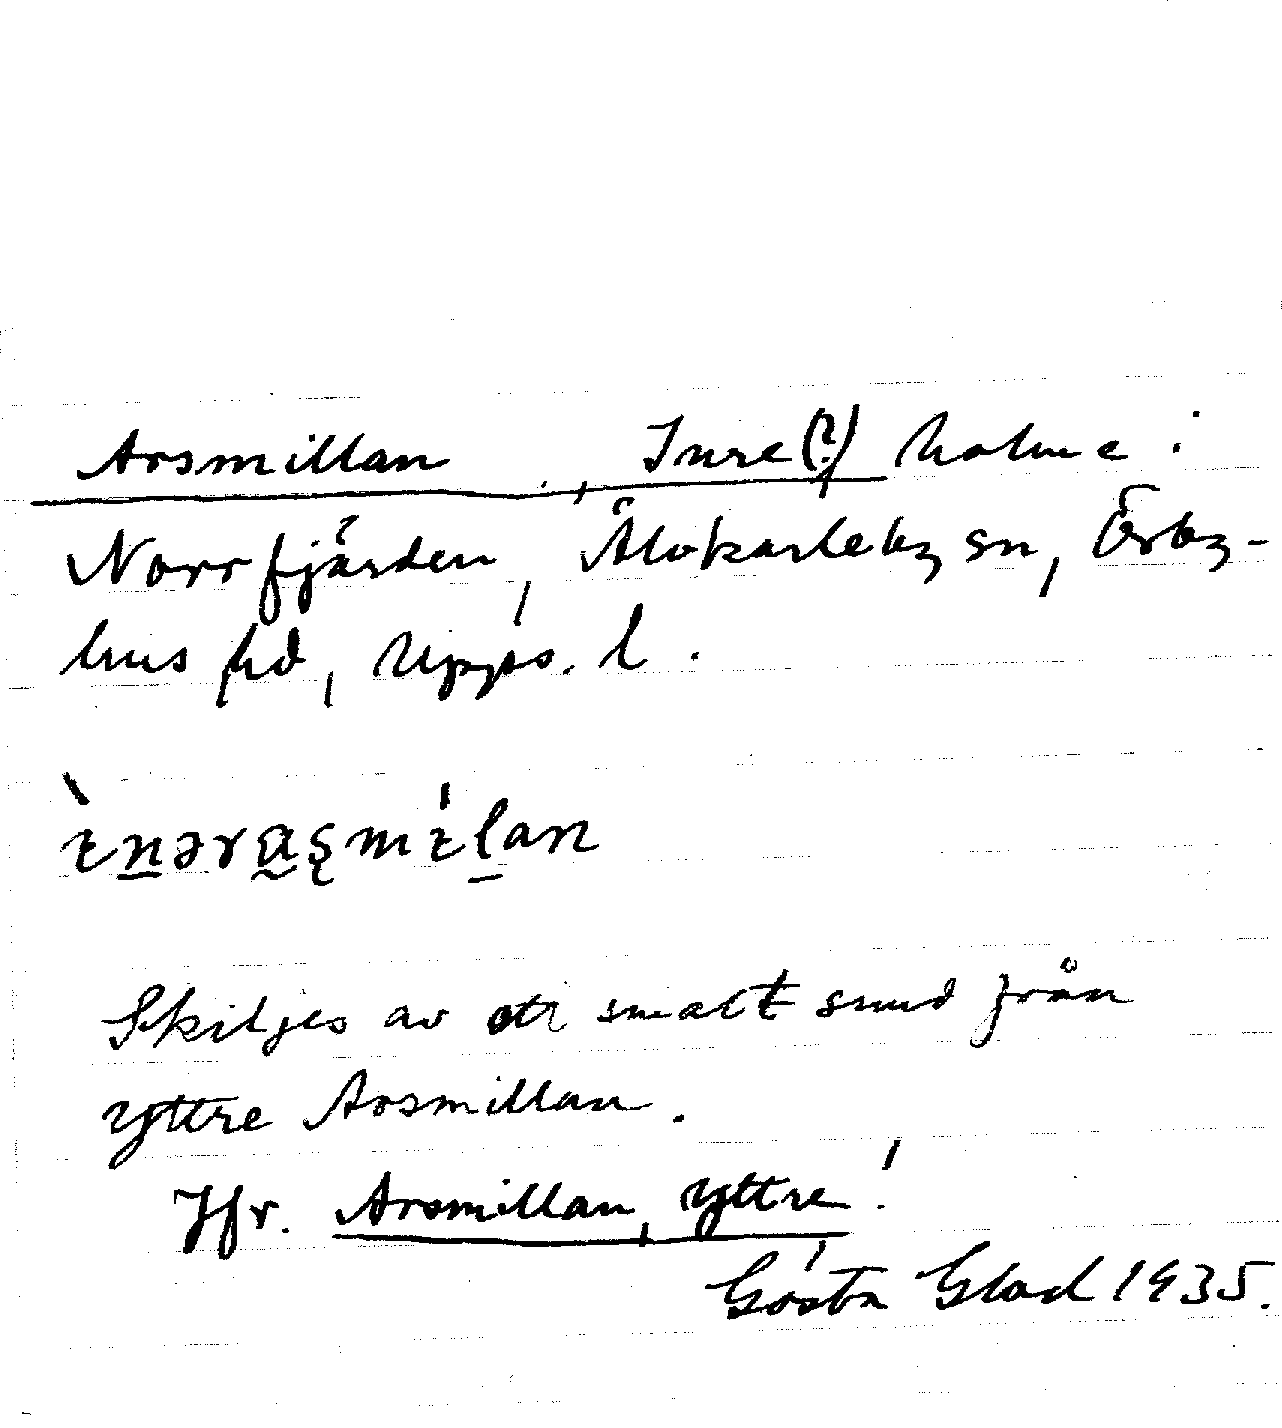 Arsmillan, Inre(?) holme i
Norrfjärden, Älvkarleby sn, Örby-
hus hd, Upps. l.
ènərasmílan
Skiljes av ett smalt sund från
yttre Arsmillan.
Jfr. Arsmillan, yttre!
Gösta Glad 1935.